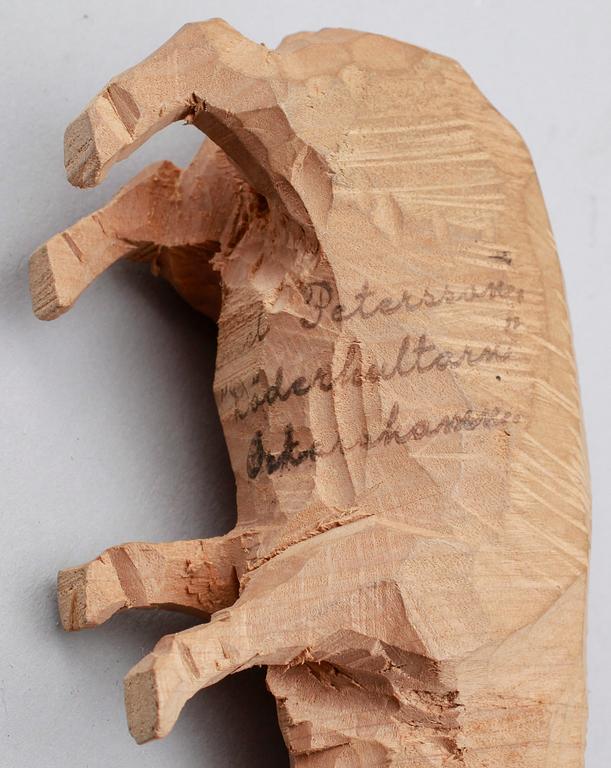 Petersson,
"Döderhultarn"
Oskarshamn.